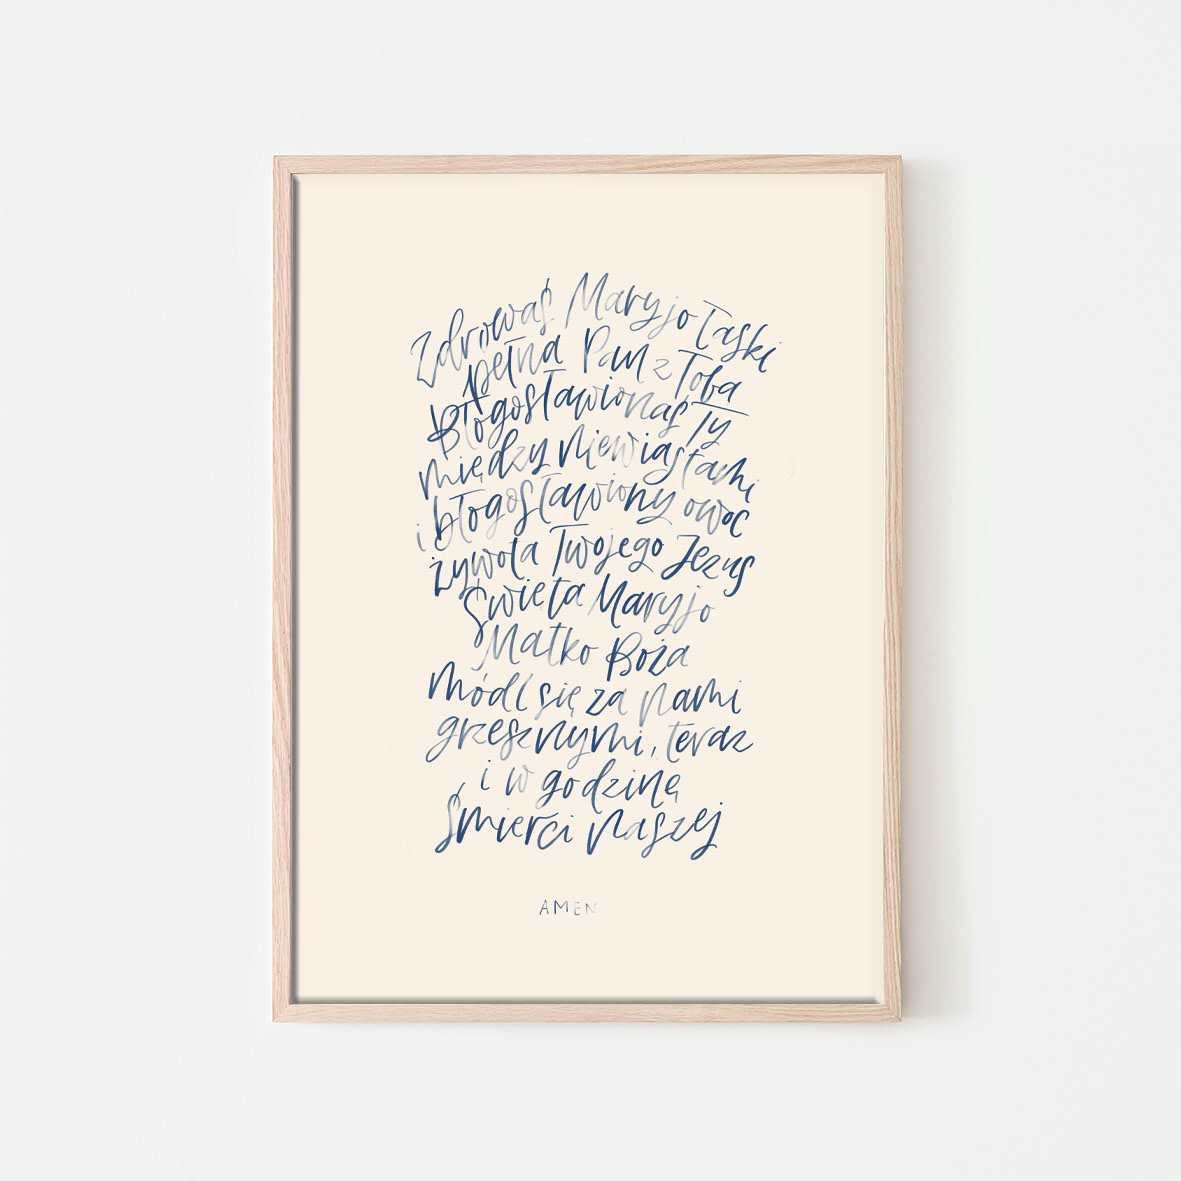 Zdrowaś Maryjo łaski
pełna Pan z Tobą
Błogosławionaś Ty
między niewiastami
i błogosławiony owoc
żywota Twojego Jezus
Święta Maryjo
Matko Boża
módl się za nami
grzesznymi, teraz
i w godzinę
śmierci naszej
AMEN